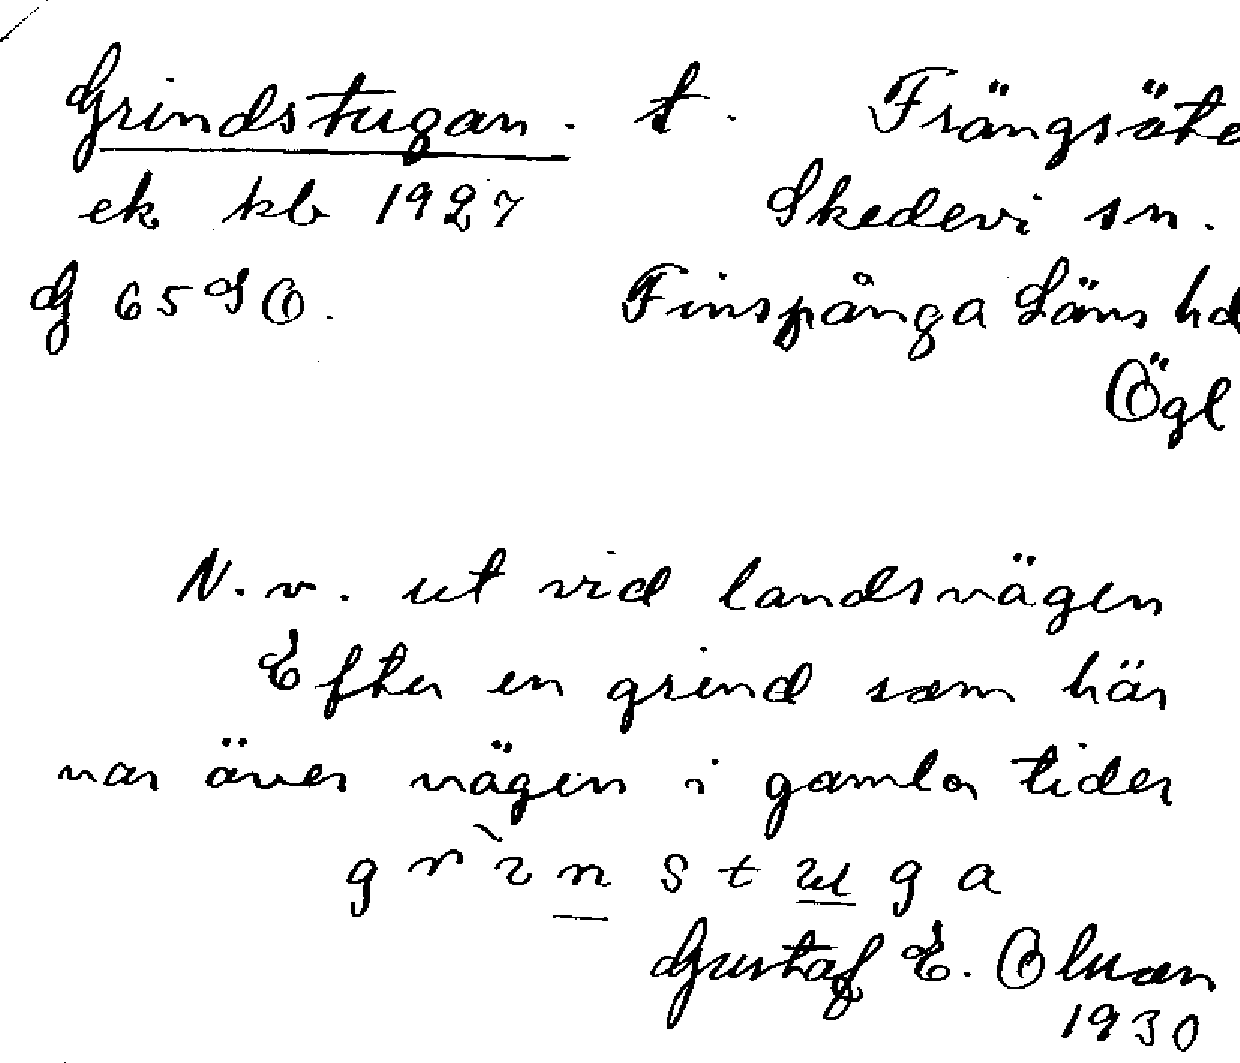 Grindstugan. t. Frängsäte
ek kb 1927 Skedevi sn.
G 65 SO. Finspånga Läns hd
Ögl
N. v. ut vid landsvägen
Efter en grind som här
var över vägen i gamla tider
grìn stuga
Gustaf E. Olsson
1930